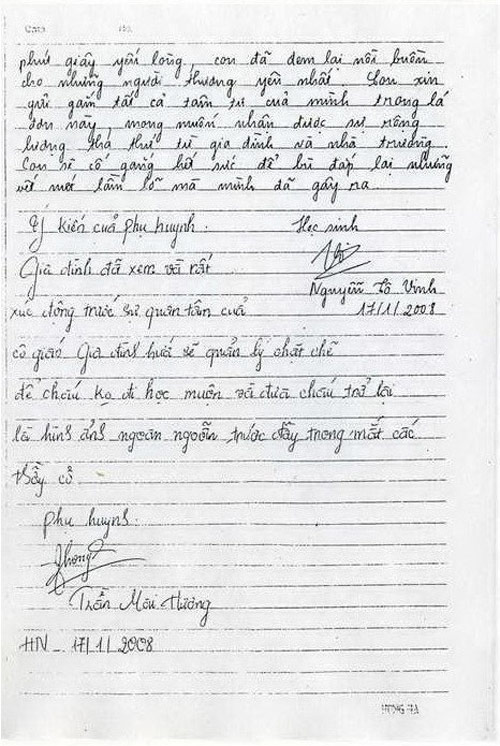 phút giây yếu lòng, con đã đem lại nỗi buồn
cho những người thương yêu nhất. Con xin
gửi gắm tất cả tâm tư của mình trong lá
đơn này, mong muốn nhận được sự rộng
lượng tha thứ từ gia đình và nhà trường.
Con sẽ cố gắng hết sức để bù đắp lại những
vết mét lầm lỗ mà mình đã gây ra.
Ý kiến cuả phụ huynh.
Học sinh
Gia đình đã xem và rất
Nguyễn Tô Vinh
17/1/2008
xúc động trước sự quan tâm cuả
cô giáo. Gia đình hứa sẽ quản lý chặt chẽ
để cháu ko đi học muộn và đưa cháu trở lại
là hình ảnh ngoan ngoãn trước đây trong mắt các
thầy cô
phụ huynh.
Trần Hương
HN - 17/1/2008
HỒNG HÀ